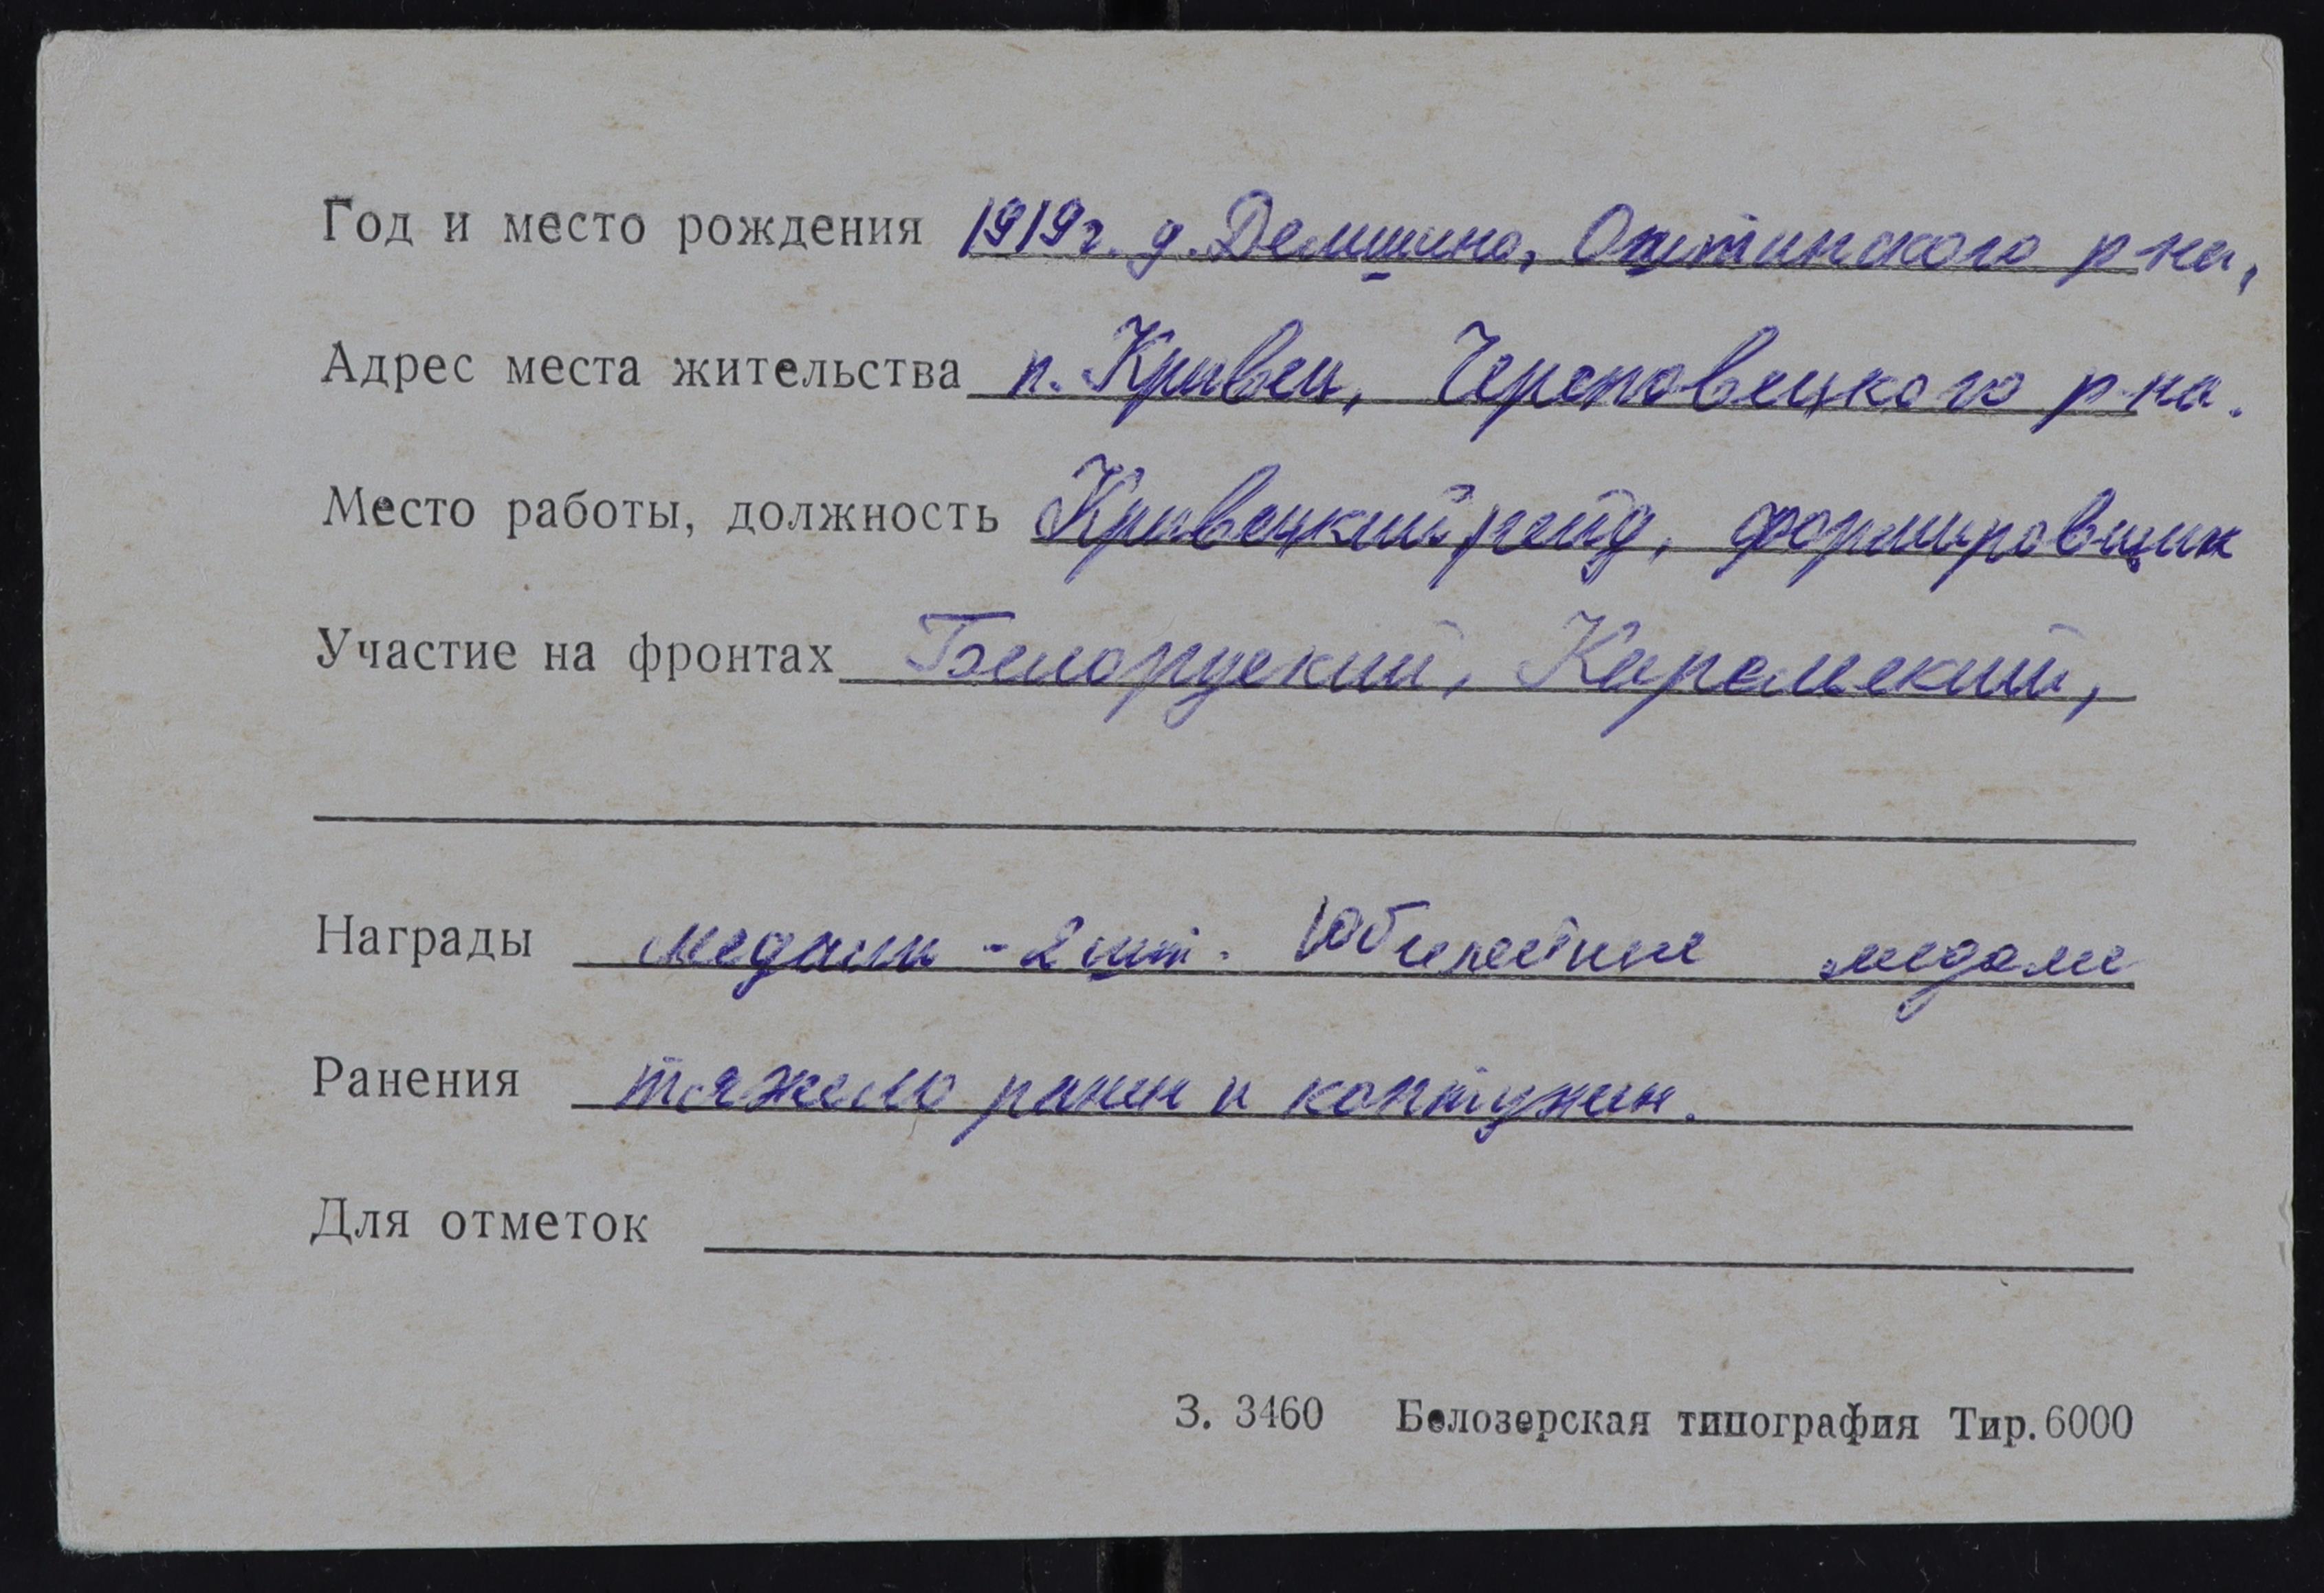 Год и место рождения 1919г. д. Демшино, Оштинского р-на,
Адрес места жительства п. Кривец, Череповецкого р-на.
Место работы, должность Кривецкий рейд, формировщик
Участие на фронтах Белоруский, Карельский,
Награды медали - 2 шт. Юбилейные медали
Ранения тяжело ранен и контужен.
Для отметок
З. 3460 Белозерская типография Тир. 6000